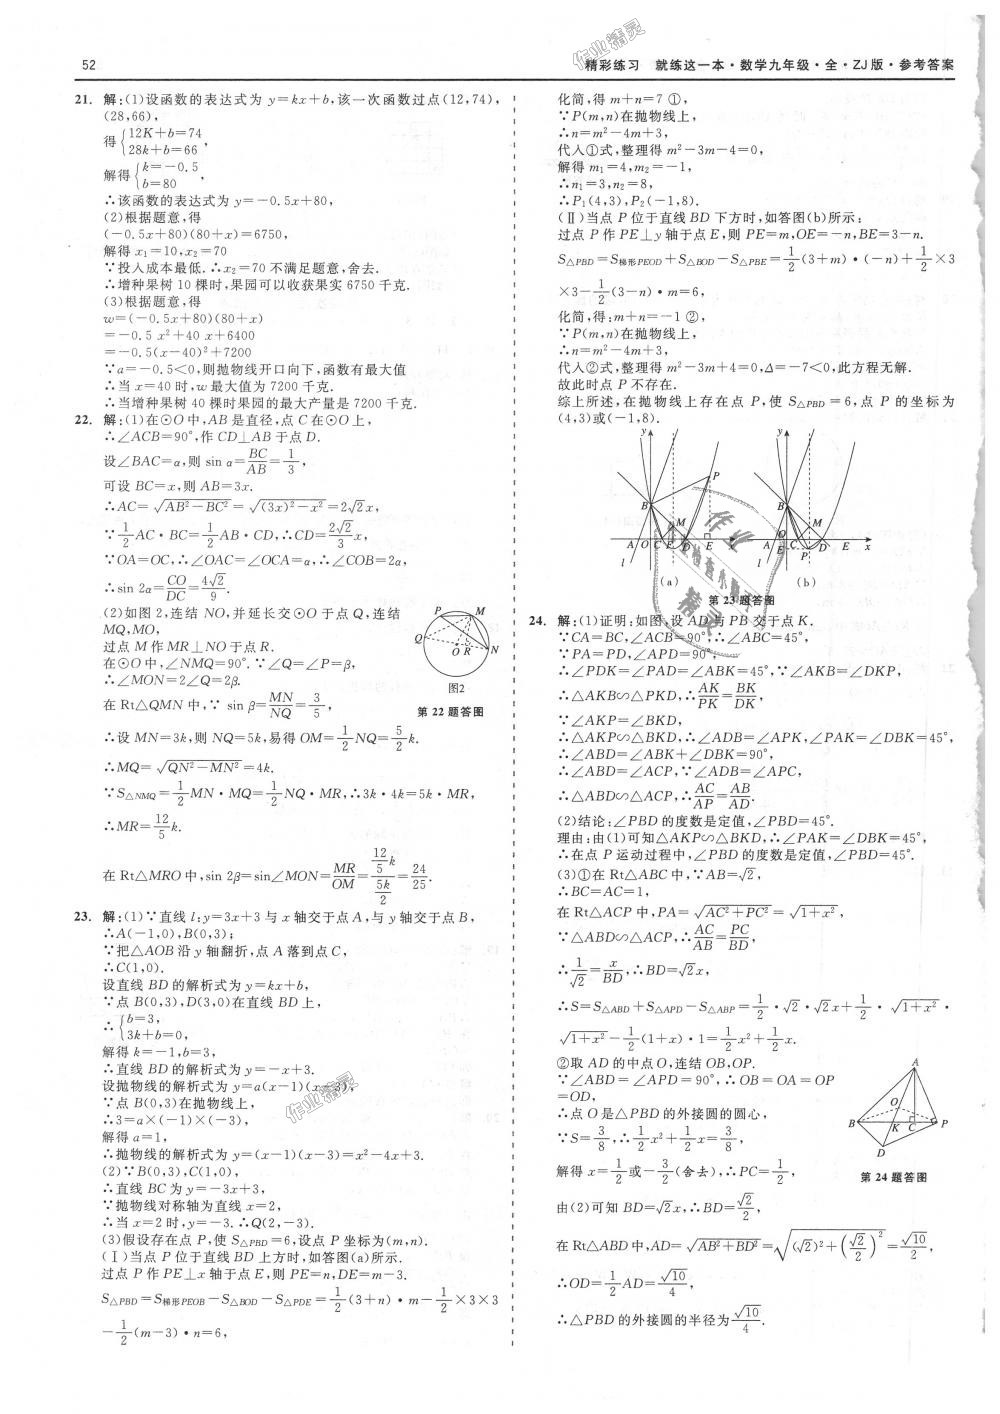 52
精彩练习 就练这一本·数学九年级·全·ZJ版·参考答案
21. 解:(1)设函数的表达式为 y=kx+b,该一次函数过点(12,74),
(28,66),
得{12K+b=74
28k+b=66,
解得{k=-0.5
b=80,
∴该函数的表达式为 y=-0.5x+80,
(2)根据题意,得
(-0.5x+80)(80+x)=6750,
解得 x₁=10,x₂=70
∵投入成本最低.∴x₂=70 不满足题意,舍去.
∴增种果树 10 棵时,果园可以收获果实 6750 千克.
(3)根据题意,得
w=(-0.5x+80)(80+x)
=-0.5 x²+40 x+6400
=-0.5(x-40)²+7200
∵a=-0.5<0,则抛物线开口向下,函数有最大值
∴当 x=40 时,w 最大值为 7200 千克.
∴当增种果树 40 棵时果园的最大产量是 7200 千克.
22. 解:(1)在⊙O 中,AB 是直径,点 C 在⊙O 上,
∴∠ACB=90°,作 CD⊥AB 于点 D.
设∠BAC=α,则 sin α=BC/AB=1/3,
可设 BC=x,则 AB=3x.
∴AC=√(AB²-BC²)=√((3x)²-x²)=2√2x,
∵1/2 AC·BC=1/2 AB·CD,∴CD=2√2/3 x,
∵OA=OC,∴∠OAC=∠OCA=α,∴∠COB=2α,
∴sin 2α=CO/DC=4√2/9.
(2)如图 2,连结 NO,并延长交⊙O 于点 Q,连结
MQ,MO,
过点 M 作 MR⊥NO 于点 R.
在⊙O 中,∠NMQ=90°.∵∠Q=∠P=β,
∴∠MON=2∠Q=2β.
在 Rt△QMN 中,∵ sin β=MN/NQ=3/5,
∴设 MN=3k,则 NQ=5k,易得 OM=1/2 NQ=5/2 k.
∴MQ=√(QN²-MN²)=4k.
∵S△NMQ=1/2 MN·MQ=1/2 NQ·MR,∴3k·4k=5k·MR,
∴MR=12/5 k.
在 Rt△MRO 中,sin 2β=sin∠MON=MR/OM=(12/5 k)/(5k/2)=24/25.
P M Q O R N
图2
第 22 题答图
23. 解:(1)∵直线 l:y=3x+3 与 x 轴交于点 A,与 y 轴交于点 B,
∴A(-1,0),B(0,3);
∵把△AOB 沿 y 轴翻折,点 A 落到点 C,
∴C(1,0).
设直线 BD 的解析式为 y=kx+b,
∵点 B(0,3),D(3,0)在直线 BD 上,
∴{b=3,
3k+b=0,
解得 k=-1,b=3,
∴直线 BD 的解析式为 y=-x+3.
设抛物线的解析式为 y=a(x-1)(x-3),
∵点 B(0,3)在抛物线上,
∴3=a×(-1)×(-3),
解得 a=1,
∴抛物线的解析式为 y=(x-1)(x-3)=x²-4x+3.
(2)∵B(0,3),C(1,0),
∴直线 BC 为 y=-3x+3,
∵抛物线对称轴为直线 x=2,
∴当 x=2 时,y=-3.∴Q(2,-3).
(3)假设存在点 P,使 S△PBD=6,设点 P 坐标为(m,n).
(Ⅰ)当点 P 位于直线 BD 上方时,如答图(a)所示.
过点 P 作 PE⊥x 轴于点 E,则 PE=n,DE=m-3.
S△PBD=S梯形PEOB-S△BOD-S△PDE=1/2(3+n)·m-1/2×3×3
-1/2(m-3)·n=6,
化简,得 m+n=7 ①,
∵P(m,n)在抛物线上,
∴n=m²-4m+3,
代入①式,整理得 m²-3m-4=0,
解得 m₁=4,m₂=-1,
∴n₁=3,n₂=8,
∴P₁(4,3),P₂(-1,8).
(Ⅱ)当点 P 位于直线 BD 下方时,如答图(b)所示;
过点 P 作 PE⊥y 轴于点 E,则 PE=m,OE=-n,BE=3-n.
S△PBD=S梯形PEOD+S△BOD-S△PBE=1/2(3+m)·(-n)+1/2×3
×3-1/2(3-n)·m=6,
化简,得:m+n=-1 ②,
∵P(m,n)在抛物线上,
∴n=m²-4m+3,
代入②式,整理得 m²-3m+4=0,Δ=-7<0,此方程无解.
故此时点 P 不存在.
综上所述,在抛物线上存在点 P,使 S△PBD=6,点 P 的坐标为
(4,3)或(-1,8).
y P B M A O C F D E x l
(a)
y B O M A E C P D E x l
(b)
第 23 题答图
24. 解:(1)证明:如图,设 AD 与 PB 交于点 K.
∵CA=BC,∠ACB=90°,∴∠ABC=45°,
∵PA=PD,∠APD=90°,
∴∠PDK=∠PAD=∠ABK=45°,∵∠AKB=∠DKP,
∴△AKB∽△PKD,∴AK/PK=BK/DK,
∵∠AKP=∠BKD,
∴△AKP∽△BKD,∴∠ADB=∠APK,∠PAK=∠DBK=45°,
∴∠ABD=∠ABK+∠DBK=90°,
∴∠ABD=∠ACP,∵∠ADB=∠APC,
∴△ABD∽△ACP,∴AC/AP=AB/AD.
(2)结论:∠PBD 的度数是定值,∠PBD=45°.
理由:由(1)可知△AKP∽△BKD,∴∠PAK=∠DBK=45°,
∴在点 P 运动过程中,∠PBD 的度数是定值,∠PBD=45°.
(3)①在 Rt△ABC 中,∵AB=√2,
∴BC=AC=1,
在 Rt△ACP 中,PA=√(AC²+PC²)=√(1+x²),
∵△ABD∽△ACP,∴AC/AB=PC/BD,
∴1/√2=x/BD,∴BD=√2x,
∴S=S△ABD+S△APD-S△ABP=1/2·√2·√2x+1/2·√(1+x²)·
√(1+x²)-1/2(1+x)·1=1/2x²+1/2x.
②取 AD 的中点 O,连结 OB,OP.
∵∠ABD=∠APD=90°,∴OB=OA=OP
=OD,
∴点 O 是△PBD 的外接圆的圆心,
∵S=3/8,∴1/2x²+1/2x=3/8,
解得 x=1/2 或-3/2(舍去),∴PC=1/2,
由(2)可知 BD=√2x,∴BD=√2/2,
在 Rt△ABD 中,AD=√(AB²+BD²)=√((√2)²+(√2/2)²)=√10/2,
∴OD=1/2AD=√10/4,
∴△PBD 的外接圆的半径为√10/4.
A O B K C P D
第 24 题答图
作业精灵
作业精灵
作业
检查小帮手
精灵